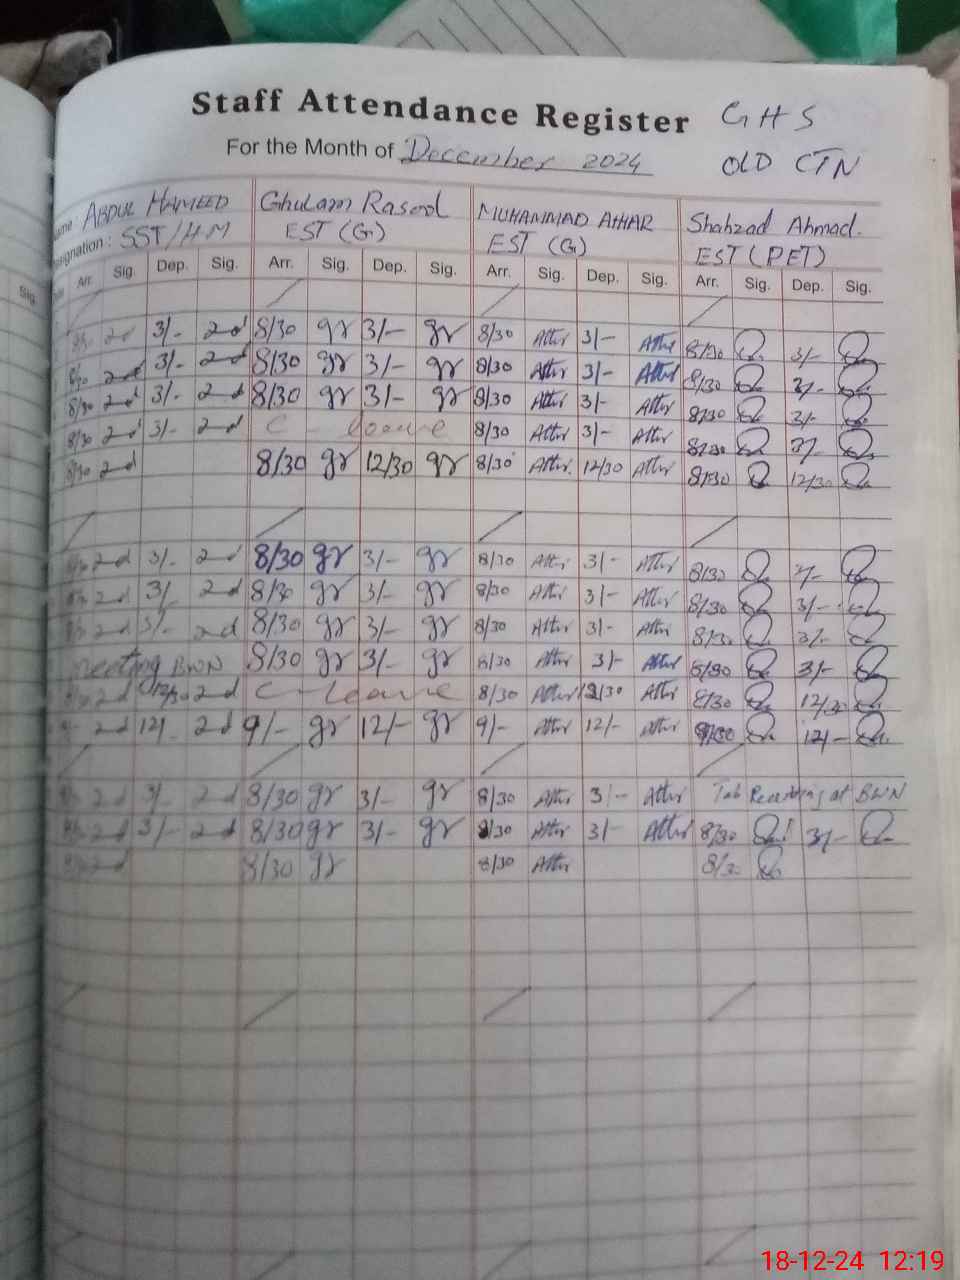 Staff Attendance Register GHS
For the Month of December 2024 OLD CTN
ame ABDUL HAMEED Ghulam Rasool MUHAMMAD ATHAR Shahzad Ahmad.
signation : SST/HM EST (G) EST (G) EST (PET)
Arr. Sig. Dep. Sig. Arr. Sig. Dep. Sig. Arr. Sig. Dep. Sig. Arr. Sig. Dep. Sig.
Sig.
3/- 8/30 gr 3/- gr 8/30 Ather 3/- Ather 8/30 3/-
8/30 3/- 8/30 gr 3/- gr 8/30 Ather 3/- Ather 8/30 3/-
8/30 3/- 8/30 gr 3/- gr 8/30 Ather 3/- Ather 8/30 3/-
8/30 3/- C - leave 8/30 Ather 3/- Ather 8/30 3/-
8/30 8/30 gr 12/30 gr 8/30 Ather 12/30 Ather 8/30 12/30
3/- 8/30 gr 3/- gr 8/30 Ather 3/- Ather 8/30 3/-
3/- 8/30 gr 3/- gr 8/30 Ather 3/- Ather 8/30 3/-
3/- 8/30 gr 3/- gr 8/30 Ather 3/- Ather 8/30 3/-
meeting BWN 8/30 gr 3/- gr 8/30 Ather 3/- Ather 8/30 3/-
12/30 C - leave 8/30 Ather 12/30 Ather 8/30 12/30
12/- 9/- gr 12/- gr 9/- Ather 12/- Ather 12/-
3/- 8/30 gr 3/- gr 8/30 Ather 3/- Ather Tab Receiving at BWN
3/- 8/30 gr 3/- gr 8/30 Ather 3/- Ather 8/30 3/-
8/30 gr 8/30 Ather 8/30
18-12-24 12:19